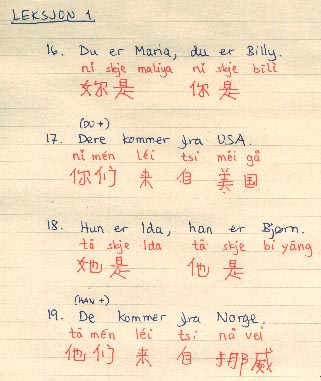 LEKSJON 1
16. Du er Maria, du er Billy.
ni skje maliya ni skje bili
妳是 你是
(DU+)
17. Dere kommer fra USA.
ni mén léi tsi méi gå
你们 来 自 美国
18. Hun er Ida, han er Bjørn.
tā skje Ida tā skje bi yāng
她是 他 是
(HAN+)
19. De kommer fra Norge.
tā mén léi tsi nå vei
他们 来 自 挪威